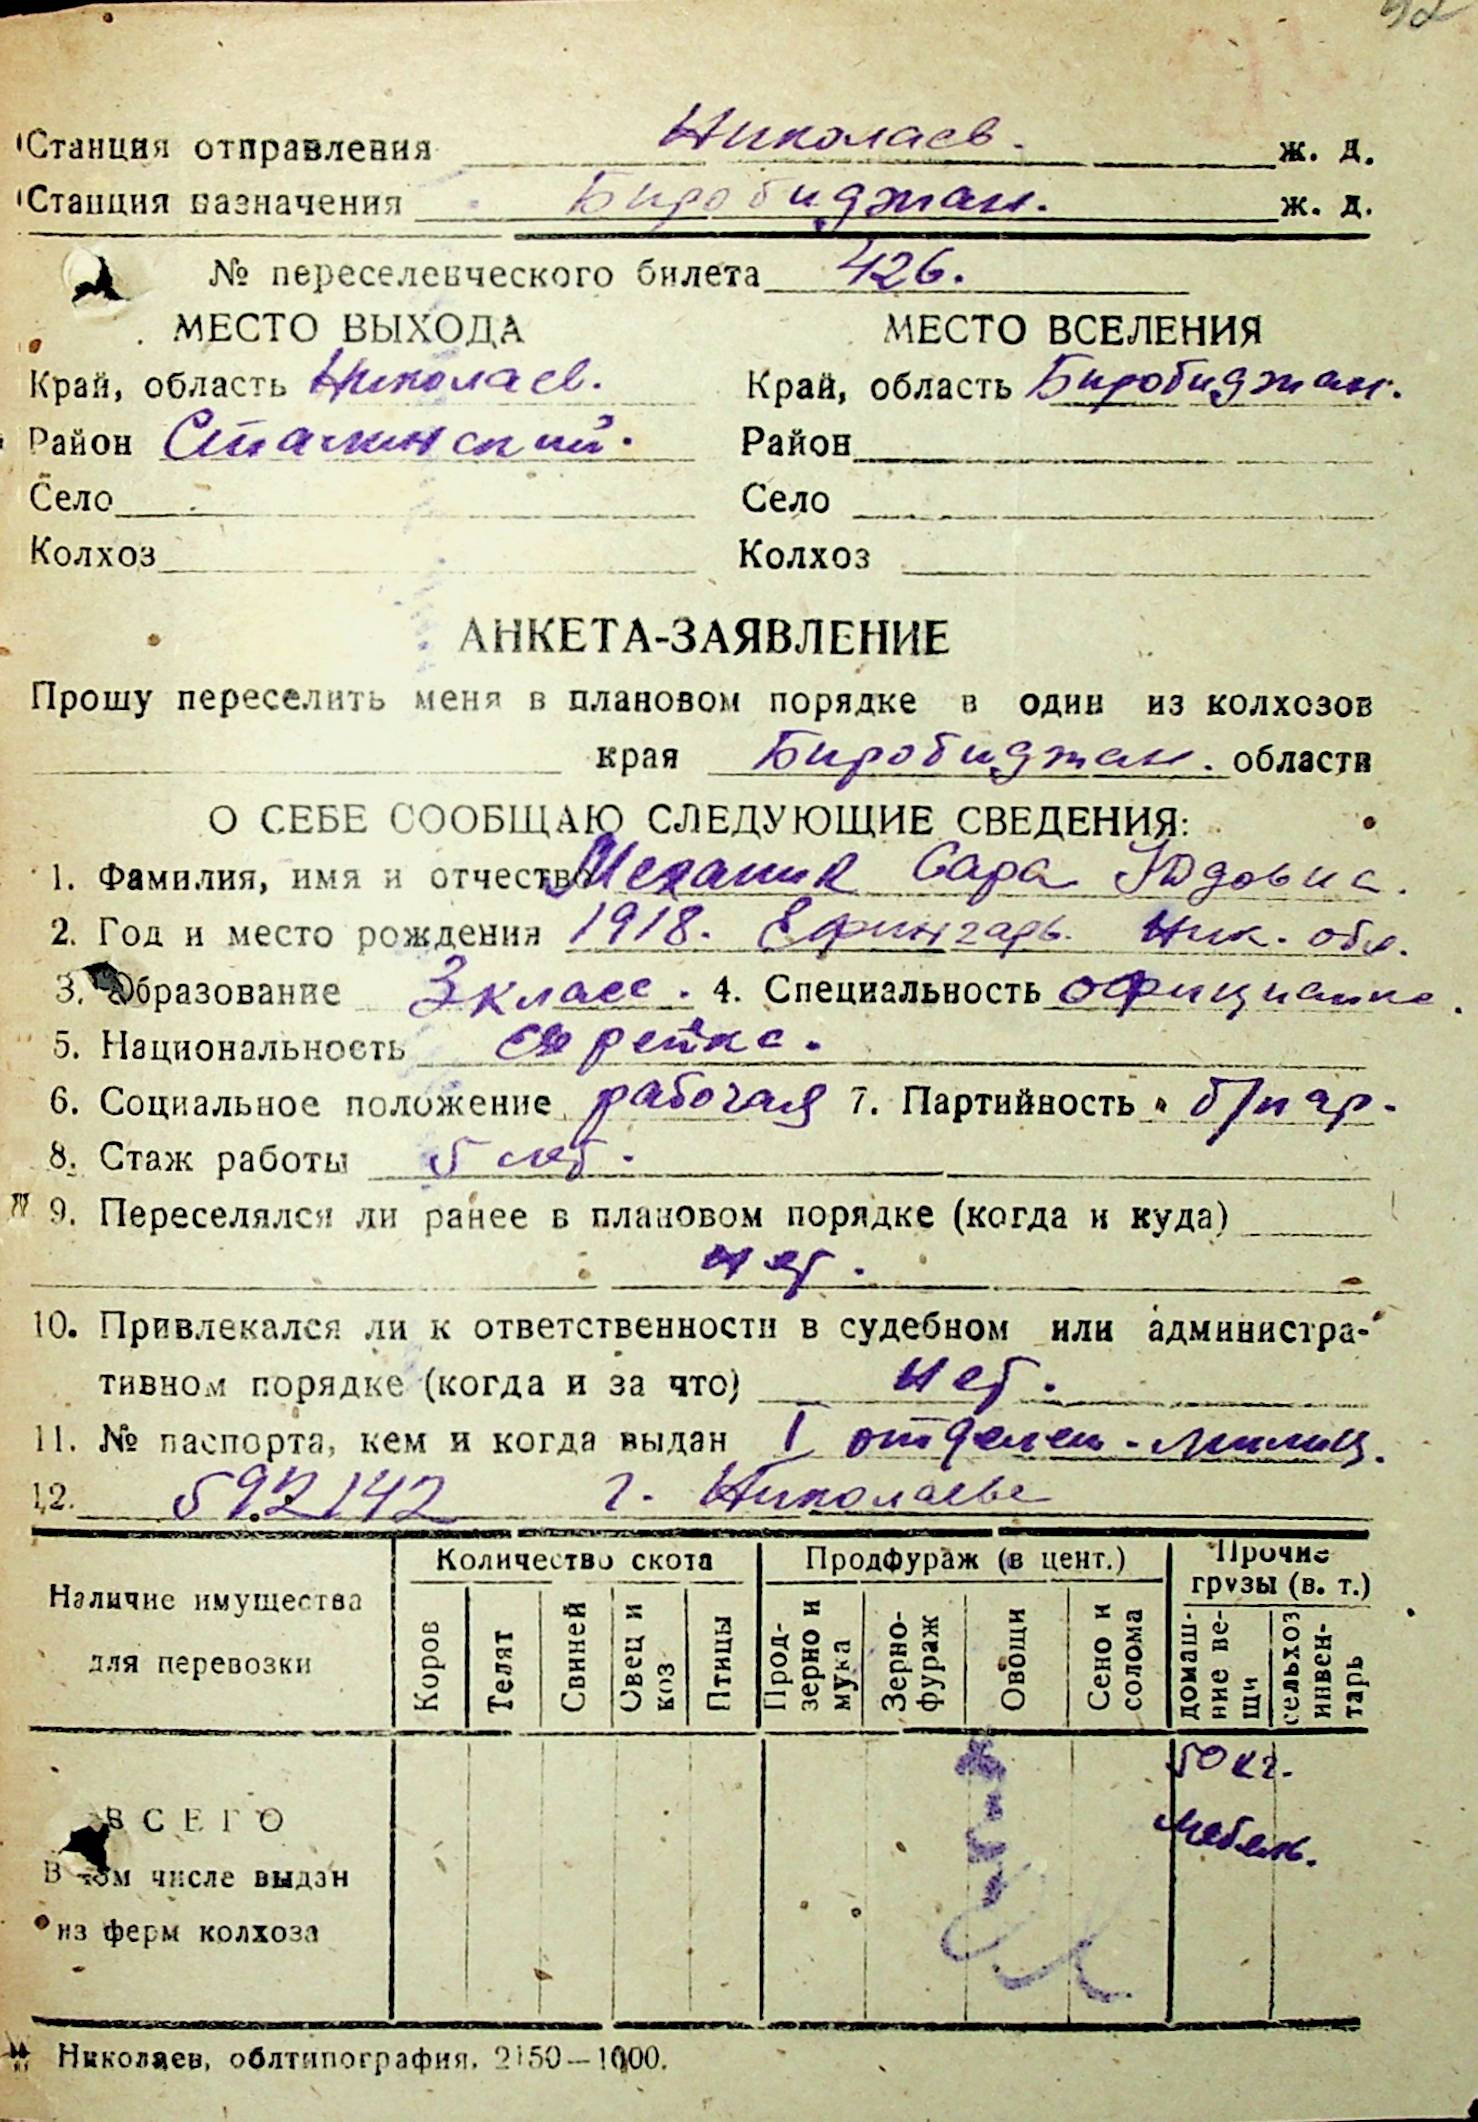 Станция отправления Николаев. ж. д.
Станция назначения Биробиджан. ж. д.
№ переселенческого билета 426.
МЕСТО ВЫХОДА МЕСТО ВСЕЛЕНИЯ
Край, область Николаев. Край, область Биробиджан.
Район Сталинский. Район
Село Село
Колхоз Колхоз
АНКЕТА-ЗАЯВЛЕНИЕ
Прошу переселить меня в плановом порядке в один из колхозов
края Биробиджан. области
О СЕБЕ СООБЩАЮ СЛЕДУЮЩИЕ СВЕДЕНИЯ:
1. Фамилия, имя и отчество Механик Сара Юдовна.
2. Год и место рождения 1918. Ефингарь. Ник. обл.
3. Образование 3 класс. 4. Специальность официанка.
5. Национальность еврейка.
6. Социальное положение рабочая 7. Партийность б/пар.
8. Стаж работы 5 лет.
9. Переселялся ли ранее в плановом порядке (когда и куда)
нет.
10. Привлекался ли к ответственности в судебном или администра-
тивном порядке (когда и за что) нет.
11. № паспорта, кем и когда выдан I отделен. милиц.
12. 592142 г. Николаеве
Наличие имущества для перевозки
Количество скота
Продфураж (в цент.)
Прочие грузы (в. т.)
Коров
Телят
Свиней
Овец и коз
Птицы
Прод-зерно и мука
Зерно-фураж
Овощи
Сено и солома
домаш-ние ве-щи
сельхоз инвен-тарь
ВСЕГО
50 кг.
мебель.
В том числе выдан
из ферм колхоза
Николаев, облтипография. 2150—1000.